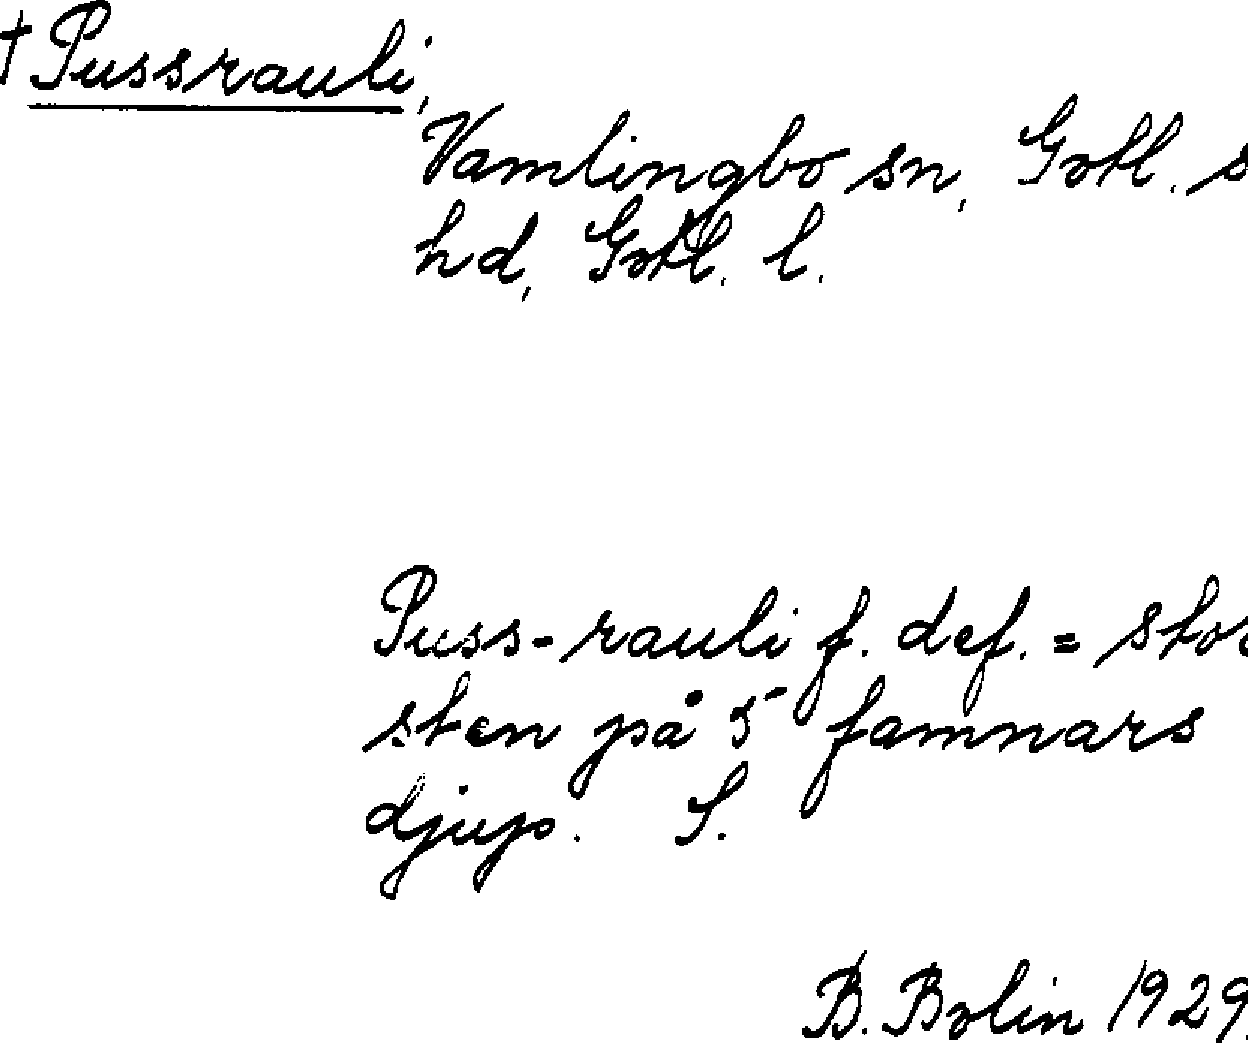 † Pussrauli,
Vamlingbo sn, Gotl. s
hd, Gotl. l.
Puss-rauli f. def. = stor
sten på 5 famnars
djup. S.
B. Bolin 1929.